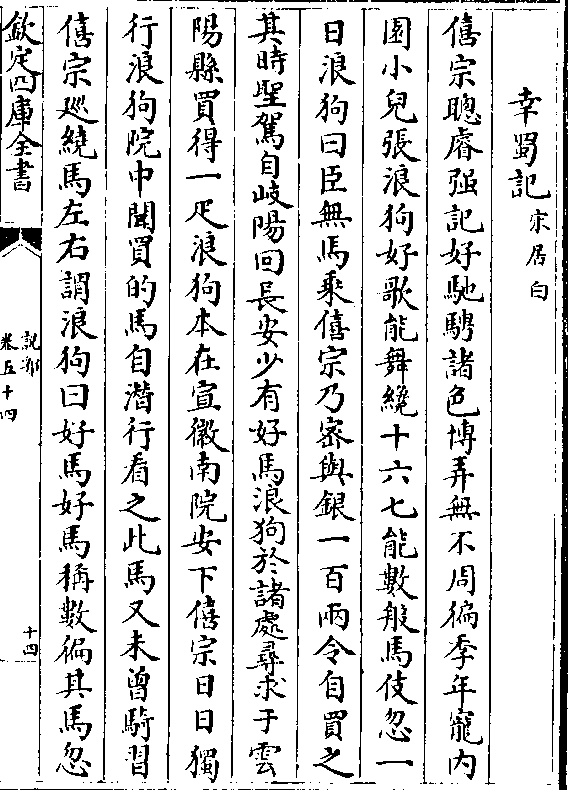 幸蜀記宋居白
僖宗聰睿强記好馳騁諸色博弄無不周徧季年寵内
園小兒張浪狗好歌能舞纔十六七能數般馬伎忽一
日浪狗曰臣無馬乘僖宗乃密與銀一百兩令自買之
其時聖駕自岐陽回長安少有好馬浪狗於諸處尋求于雲
陽縣買得一疋浪狗本在宣徽南院安下僖宗日日獨
行浪狗院中聞買的馬自潛行看之此馬又未曾騎習
僖宗廵繞馬左右謂浪狗曰好馬好馬稱數徧其馬忽
欽定四庫全書
說郛
卷五十四
十四